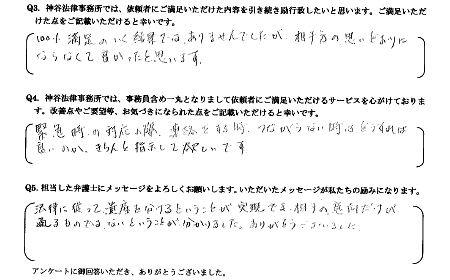 Q3. 神谷法律事務所では、依頼者にご満足いただけた内容を引き続き励行致したいと思います。ご満足いただ
けた点をご記載いただけると幸いです。
100%満足のいく結果ではありませんでしたが、相手方の思いどおりに
ならなくて良かったと思います。
Q4. 神谷法律事務所では、事務員含め一丸となりまして依頼者にご満足いただけるサービスを心がけておりま
す。改善点やご要望等、お気づきになられた点をご記載いただけると幸いです。
緊急時の対応の際、連絡をする時、つながらない時はどうすれば
良いのか、きちんと指示して欲しいです
Q5. 担当した弁護士にメッセージをよろしくお願いします。いただいたメッセージが私たちの励みになります。
法律に従って遺産を分けるということが実現でき、相手の意向だけが
通るものではないということが分かりました。ありがとうございました。
アンケートに御回答いただき、ありがとうございました。